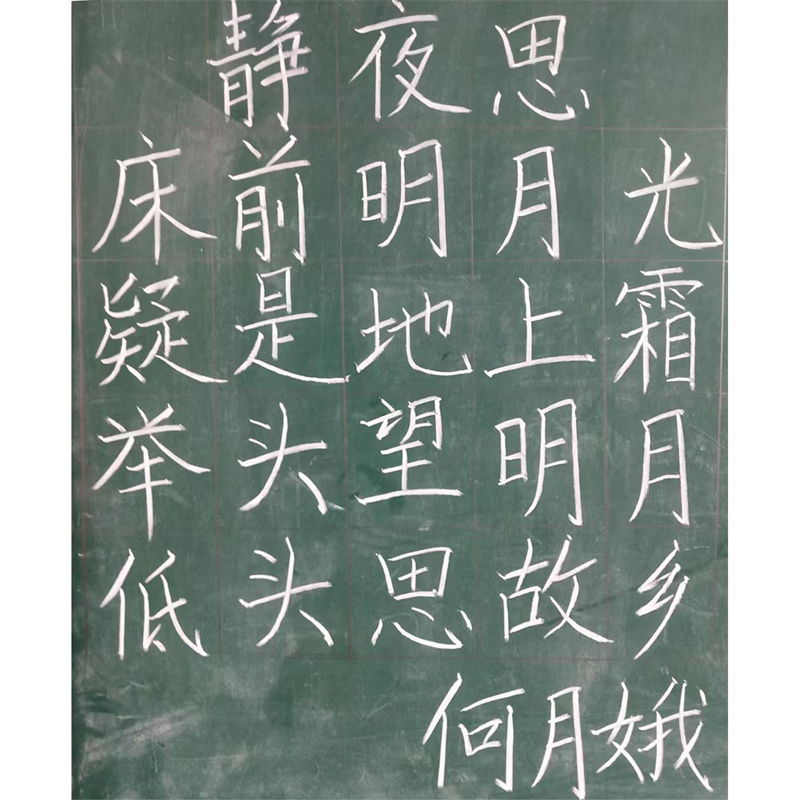 静夜思
床前明月光
疑是地上霜
举头望明月
低头思故乡
何月娥